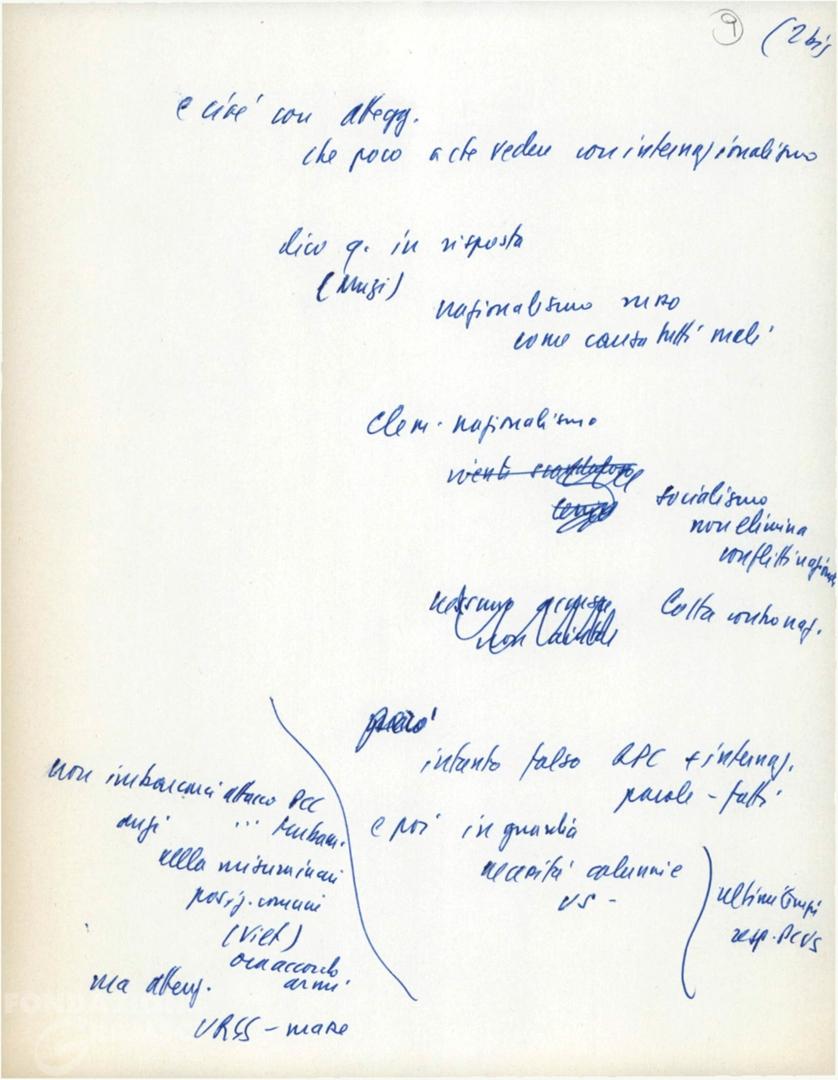 9 (2 bis
e ciò è con attegg.
che poco a che vedere con internazionalismo
dico q. in risposta
(Anzi)
nazionalismo russo
come causa tutti mali
Elem. nazionalismo
socialismo
non elimina
conflitti nazion
nessuno
non
Lotta contro naz.
però
intanto falso RPC + internaz.
parole - fatti
e poi in guardia
calunnie
US -
ultimi tempi
resp. PCUS
non imbarcarci attacco PCC
anzi
nella misura in cui
posiz. comuni
(Viet)
ora accordo
armi
ma atteng.
URSS - mare
FONDAZIONE